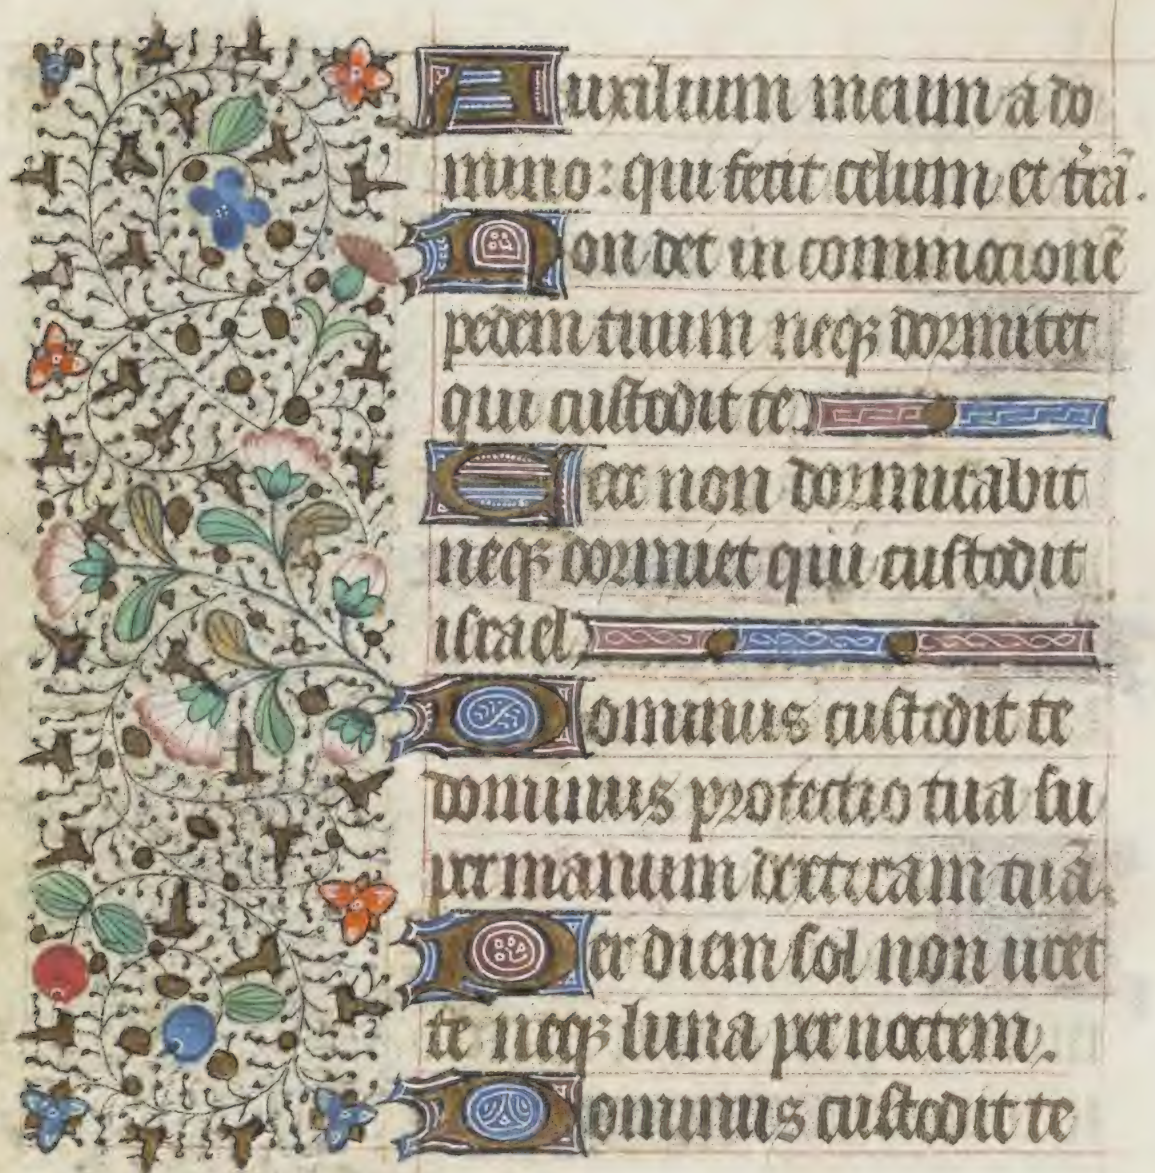 Auxilium meum a do
mino: qui fecit celum et tr̃ã.
Non det in commocionẽ
pedem tuum neqꝫ dormitet
qui custodit te
Ecce non dormitabit
neqꝫ dormiet qui custodit
israel
Dominus custodit te
dominus protectio tua su
per manum dexteram tuã.
Per diem sol non uret
te neqꝫ luna per noctem.
Dominus custodit te